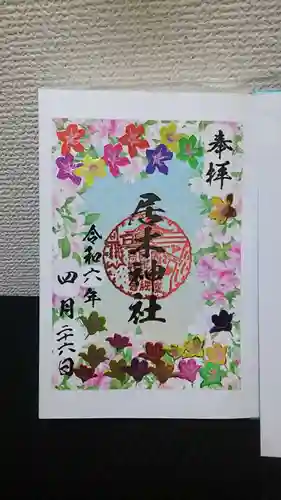 奉拝
居木神社
令和六年
四月二十六日